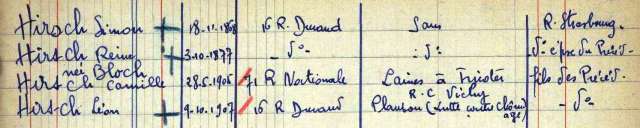 Hirsch Simon + 18.11.1868 16 R. Durand Sans R. Strasbourg.
Hirsch Reine + 3.10.1877 - d° - : d° d° épse du Préct.
née Bloch
Hirsch Camille 28.5.1905 71 R Nationale Laines à Tricoter fils des Précts.
R.C Vichy
Hirsch Léon + 9.10.1907 16 R Durand (Lutte contre chômage) - d°